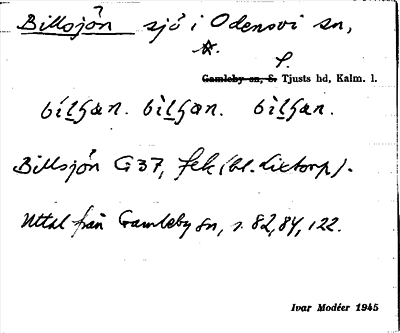 Billsjön sjö i Odensvi sn,
☆. S.
Gamleby sn, S. Tjusts hd, Kalm. l.
bílʃæn. bìlʃæn. bilʃæn.
Billsjön G 37, fek (bl. Lixtorp).
Uttal från Gamleby sn, s. 82, 84, 122.
Ivar Modéer 1945